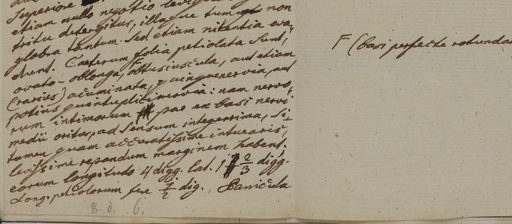 Superiore
etiam nullo negotio levi
tritu detergitur, illaque tum non
glabra tantum. Sed etiam nitentia eva,
dunt. Caeterum folia petiolata sunt,
ovato-oblonga, obtusiuscula, aut etiam
(rarius) acuminata, quinquenervia, aut
potius quintuplinervia: nam nervo,
rum intimorum par en basi nervi
medii oritur, ad sensum integerrima, si
tamen quam accuratissime intuearis,
levissime repandum marginem habent,
eorum longitudo 4 digg. lat. 1 2/3 digg.
long. petiolorum fere 1/2 dig. Panicula
F (basi perfecte rotundat
8. d. 6.